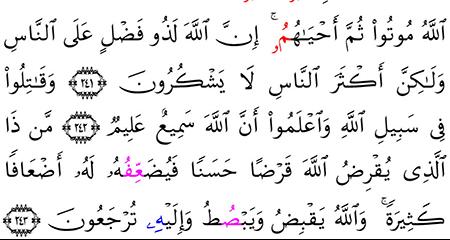 ٱللَّهُ مُوتُوا۟ ثُمَّ أَحْيَـٰهُمُۥٓ ۚ إِنَّ ٱللَّهَ لَذُو فَضْلٍ عَلَى ٱلنَّاسِ
وَلَـٰكِنَّ أَكْثَرَ ٱلنَّاسِ لَا يَشْكُرُونَ ٢٤١ وَقَـٰتِلُوا۟
فِى سَبِيلِ ٱللَّهِ وَٱعْلَمُوا۟ أَنَّ ٱللَّهَ سَمِيعٌ عَلِيمٌ ٢٤٢ مَّن ذَا
ٱلَّذِى يُقْرِضُ ٱللَّهَ قَرْضًا حَسَنًا فَيُضَعِّفُهُۥ لَهُۥ أَضْعَافًا
كَثِيرَةً ۚ وَٱللَّهُ يَقْبِضُ وَيَبْصُطُ وَإِلَيْهِۦ تُرْجَعُونَ ٢٤٣